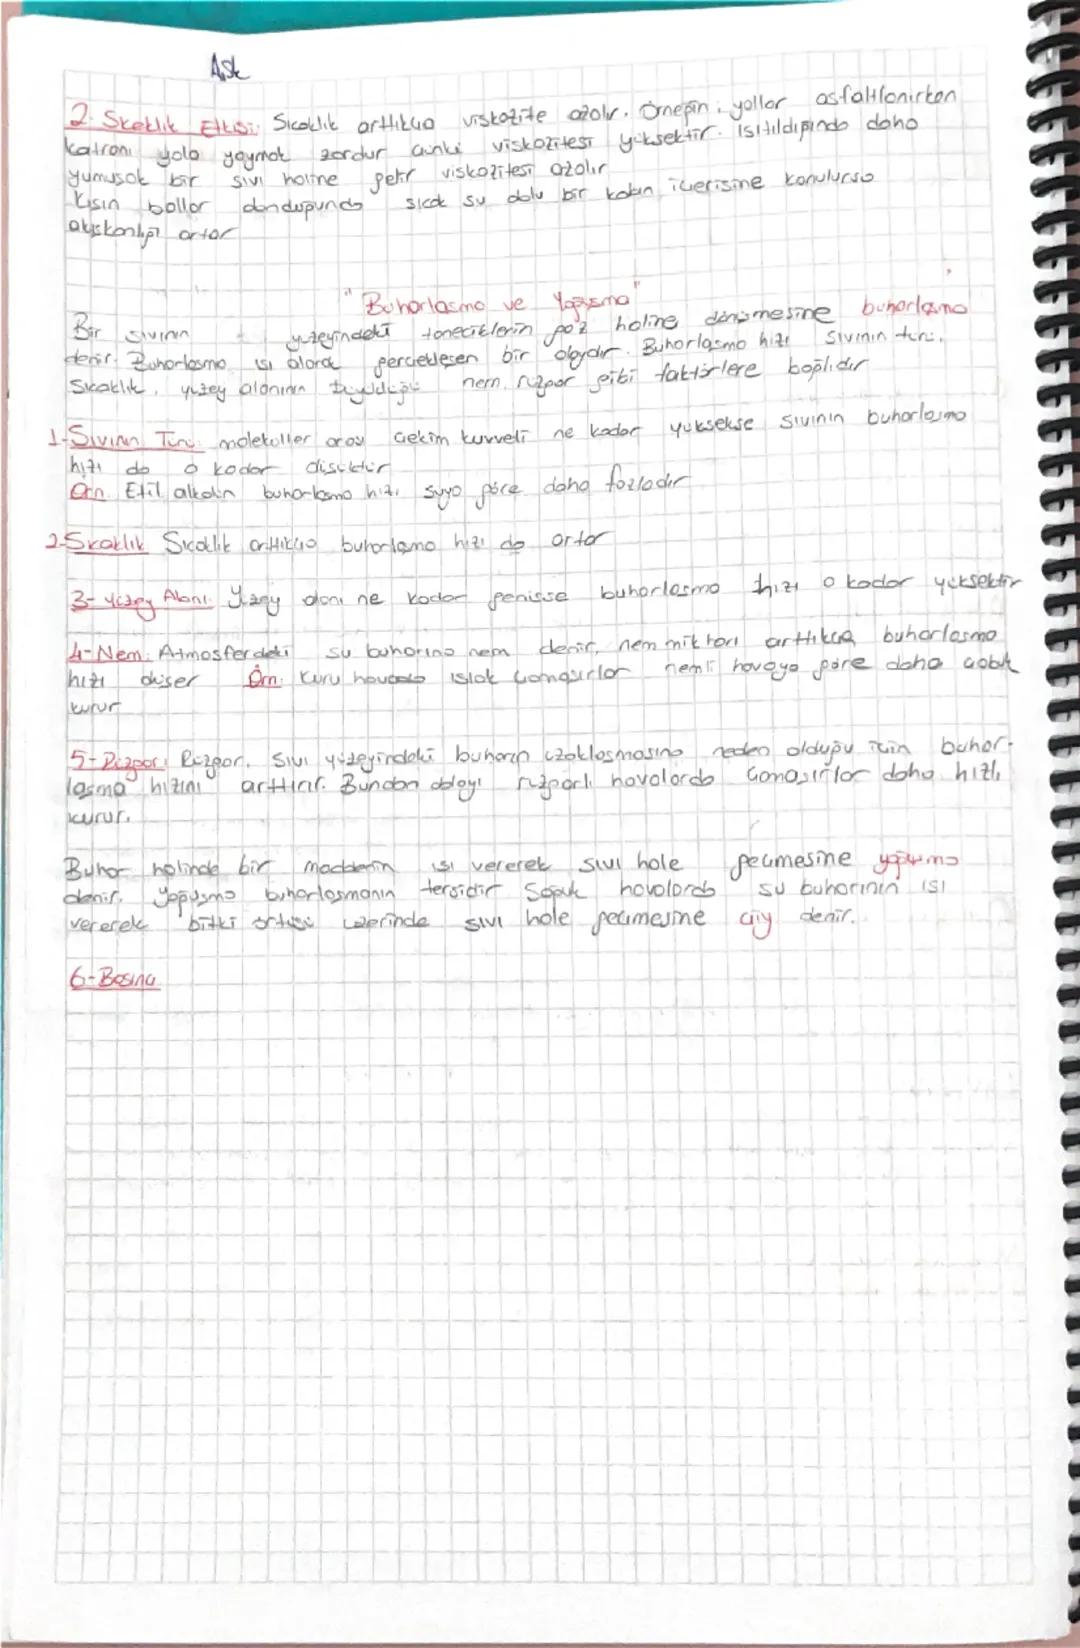 Ask
2. Sıcaklık Etkisi: Sıcaklık arttıkça viskozite azalır. Örneğin; yollar asfaltlanırken
katranı yola yaymak zordur çünkü viskozitesi yüksektir. Isıtıldığında daha
yumuşak bir sıvı haline gelir viskozitesi azalır
Kışın ballar donduğunda sıcak su dolu bir kabın içerisine konulursa
akışkanlığı artar
"Buharlaşma ve Yoğuşma"
Bir sıvının yüzeyindeki taneciklerin gaz haline dönüşmesine buharlaşma
denir. Buharlaşma ısı alarak gerçekleşen bir olaydır. Buharlaşma hızı sıvının türü,
Sıcaklık, yüzey alanının büyüklüğü nem, rüzgar gibi faktörlere bağlıdır
1-Sıvının Türü: moleküller arası çekim kuvveti ne kadar yüksekse sıvının buharlaşma
hızı da o kadar düşüktür
Örn. Etil alkolün buharlaşma hızı suya göre daha fazladır
2-Sıcaklık Sıcaklık arttıkça buharlaşma hızı da artar
3- Yüzey Alanı: Yüzey alanı ne kadar genişse buharlaşma hızı o kadar yüksektir
4-Nem: Atmosferdeki su buharına nem denir, nem miktarı arttıkça buharlaşma
hızı düşer Örn: Kuru havada ıslak çamaşırlar nemli havaya göre daha çabuk
kurur
5-Rüzgar: Rüzgar, sıvı yüzeyindeki buharın uzaklaşmasına neden olduğu için buhar-
laşma hızını arttırır. Bundan dolayı rüzgarlı havalarda çamaşırlar daha hızlı
kurur.
Buhar halinde bir maddenin ısı vererek sıvı hale geçmesine yoğuşma
denir. Yoğuşma buharlaşmanın tersidir Soğuk havalarda su buharının ısı
vererek bitki örtüsü üzerinde sıvı hale geçmesine çiy denir.
6-Basınç